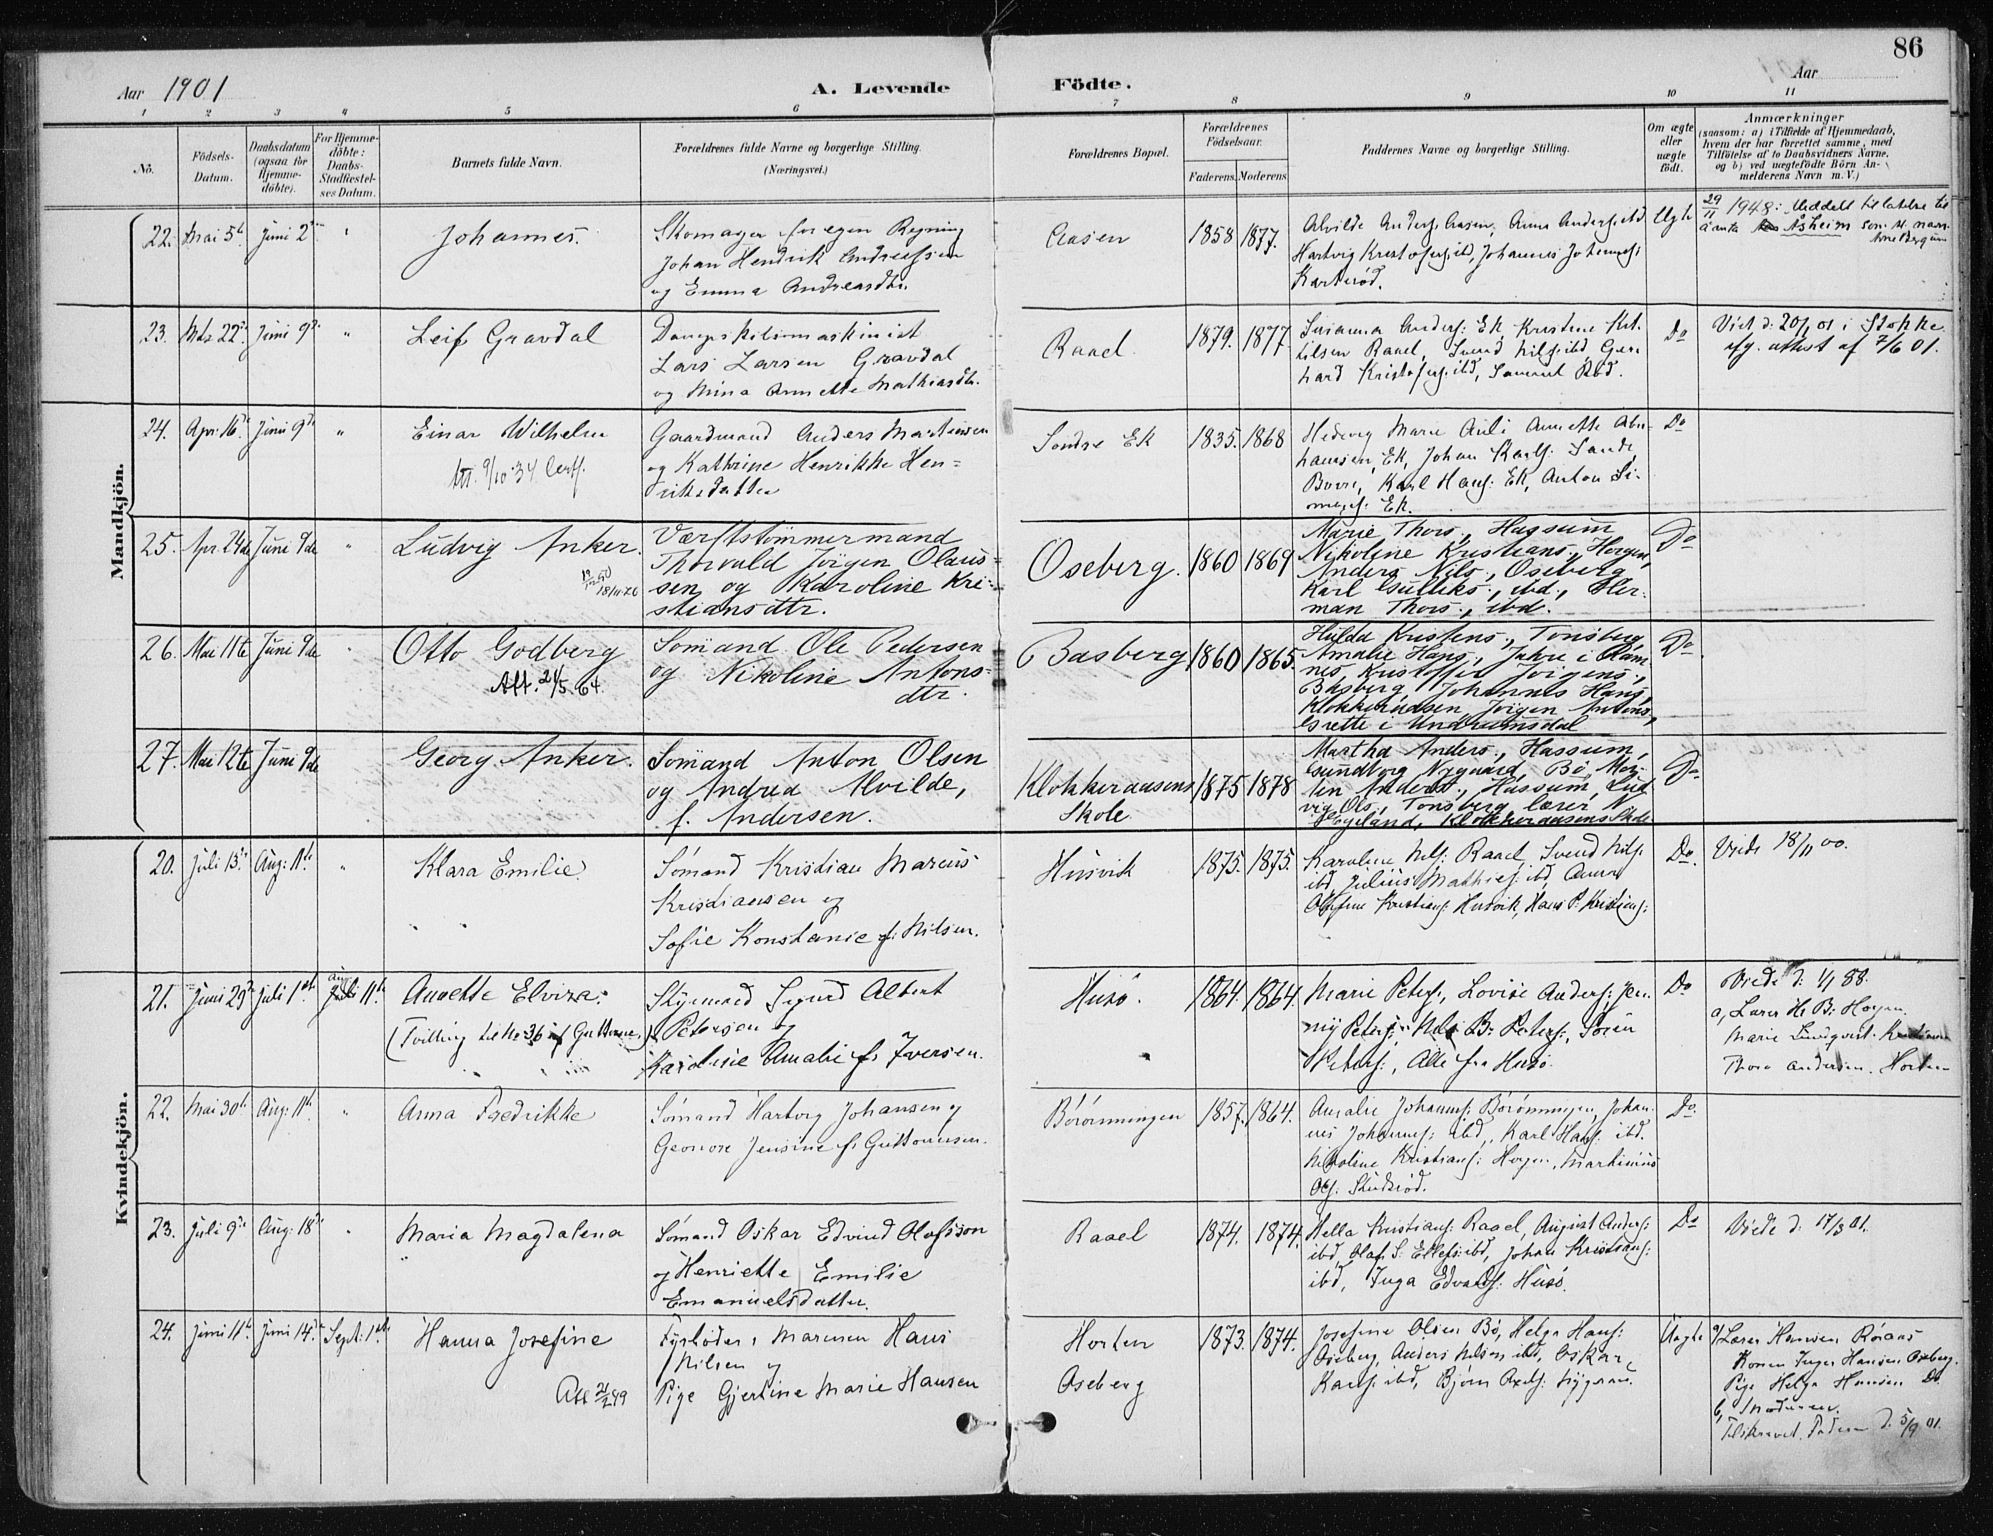 86
Aar 1901
A. Levende
Födte.
Aar
1 2 3 4 5 6 7 8 9 10 11
No.
Födsels-
Datum.
Daabsdatum
(ogsaa for
Hjemme-
döbte).
For Hjemme-
döbte:
Daabs-
Stadfæstel-
ses Datum.
Barnets fulde Navn.
Forældrenes fulde Navne og borgerlige Stilling.
(Næringsvei.)
Forældrenes Bopæl.
Forældrenes
Födselsaar.
Faderens. Moderens
Faddernes Navne og borgerlige Stilling.
Om ægte
eller
uægte
födt.
Anmærkninger
(saasom: a) i Tilfælde af Hjemmedaab,
hvem der har forrettet samme, med
Tilföielse af to Daabsvidners Navne,
og b) ved uægtefödte Börn An-
melderens Navn m. V.)
Mandkjön.
22. Mai 5te Juni 2den "
Johannes.
Skomager for egen Regning
Johan Hendrik Andreassen
og Emma Andreasdtr.
Aasen
1858 1877.
Alvilde Anders: Aasen, Anna Anders: ibd
Hartvig Kristofers: ibd, Johannes Johannes:
Ægte
29/11 1948: Meddelt tillatelse til
å anta Åsheim som sl. navn
Arne Bergum
23. Mai 22de Juni 9de "
Leif Gravdal
Dampskibsmaskinist
Lars Larsen Gravdal
og Mina Annette Mathiasdtr.
Raael.
1879. 1877.
Susanna Anders: Ek, Kristine Ket-
tilsen Raael, Svend Nils: ibd, Ger-
hard Kristofers: ibd, Samuel Rød.
Do
Viet d: 20/1 01 i Stokke
ifg. attest af 7/6 01.
24. Apr. 16de Juni 9de "
Einar Wilhelm
Att. 9/10-34
Gaardmand Anders Martinsen
og Kathrine Henrikke Hen-
riksdatter
Søndre Ek
1835. 1868
Hedevig Marie Auli Annette Abra-
hamsen, Ek, Johan Karls: Sande,
Borre, Karl Hans: Ek, Anton Si-
mens: Ek.
Do
25. Apr. 24de Juni 9de "
Ludvig Anker.
18/11-76
Værftstömmermand
Thorvald Jörgen Olaus-
sen og Karoline Kri-
stiansdtr.
Oseberg.
1860 1869
Marie Thors., Hassum,
Nikoline Kristians., Horgen,
Anders Nils., Oseberg,
Karl Gulliks., ibd., Her-
man Thors., ibd.
Do
26. Mai 11te Juni 9de "
Otto Godberg
Att. 21/5 64.
Sömand Ole Pedersen
og Nikoline Antons-
dtr.
Basberg
1860 1865.
Hulda Kristens., Tönsberg,
Amalie Hans., Jahre i Ram-
nes, Kristoffer Jörgens.,
Basberg, Johannes Hans.,
Klokkeraasen, Jörgen Antons.,
Grette i Undrumsdal
Do
27. Mai 12te Juni 9de
Georg Anker.
Sömand Anton Olsen
og Andrea Alvilde,
f. Andersen.
Klokkeraasens
Skole.
1875 1878
Martha Anders., Hassum,
Gundborg Nygaard, Bö, Mar-
tin Anders., Hassum, Lud-
vig Ols., Tönsberg, lærer N.
Egeland, Klokkeraasens Skole
Do
Kvindekjön.
20. Juli 13de Aug: 11te "
Klara Emilie.
Sømand Kristian Marcus
Kristiansen og
Sofie Konstanse f: Nilsen.
Husvik
1875. 1875.
Karoline Nils: Raael, Svend Nils:
ibd, Julius Mathias: ibd, Anna
Olufine Kristians: Husvik, Hans P. Kristians:
Do.
Viede 18/11 00.
21. Juni 29de Juli 1ste Aug 11te
Annette Elvira.
(Tvilling til No 36 af Gutterne.)
Styrmand Sigurd Albert
Petersen og
Karoline Amalie f: Iversen.
Husø.
1864. 1864.
Marie Peters:, Lovise Anders:, Jen-
ny Peters:, Nils B. Peters:, Søren
Peters:, Alle fra Husø.
Do
Viede d: 4/1 88.
a, Lærer H. B. Horgen.
Marie Lindqvist.
Thora Andersen. Horten
22. Mai 30te Aug: 11te "
Anna Fredrikke
Sømand Hartvig Johansen og
Geonore Jensine f: Guttormsen.
Børønningen
1857. 1864.
Amalie Johanns: Børønningen, Johan-
nes Johanns: ibd, Karl Hans: ibd.
Nikoline Kristians: Horgen, Martinius
Ols: Skudsrød.
Do.
23. Juli 9de Aug: 18de "
Maria Magdalena
Sømand Oskar Edvind Olafsson
og Henriette Emilie
Emanuelsdatter.
Raael
1874. 1874.
Hella Kristians: Raael, August Anders:
ibd, Olaf S. Ellefs: ibd, Johan Kristians:
ibd, Inga Edvards: Husø.
Do
Viede d: 17/3 01.
24. Juni 11te Juni 14de Sept: 1ste
Hanna Josefine
Att 21/2 49
Fyrbøder i Marinen Hans
Nilsen og
Pige Gjertine Marie Hansen
Horten
Oseberg
1873. 1874.
Josefine Olsen Bø, Helga Hans:
Oseberg, Anders Nilsen ibd, Oskar
Karls: ibd, Bjorn Axels: Nygaard.
Uægte
a/ Lærer Hansen Røraas
Konen Inger Hansen Oseberg.
Pige Helga Hansen Do.
b, Moderen.
Tilskrevet Faderen d. 5/9 01.